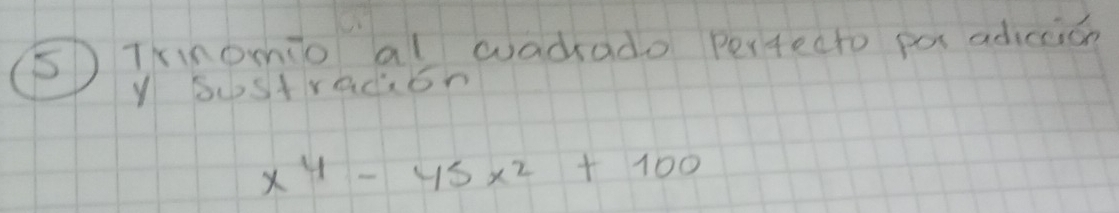 5 Trinomio al cuadrado Perfecto por adicción
y Sustración
x⁴ - 45x² + 100